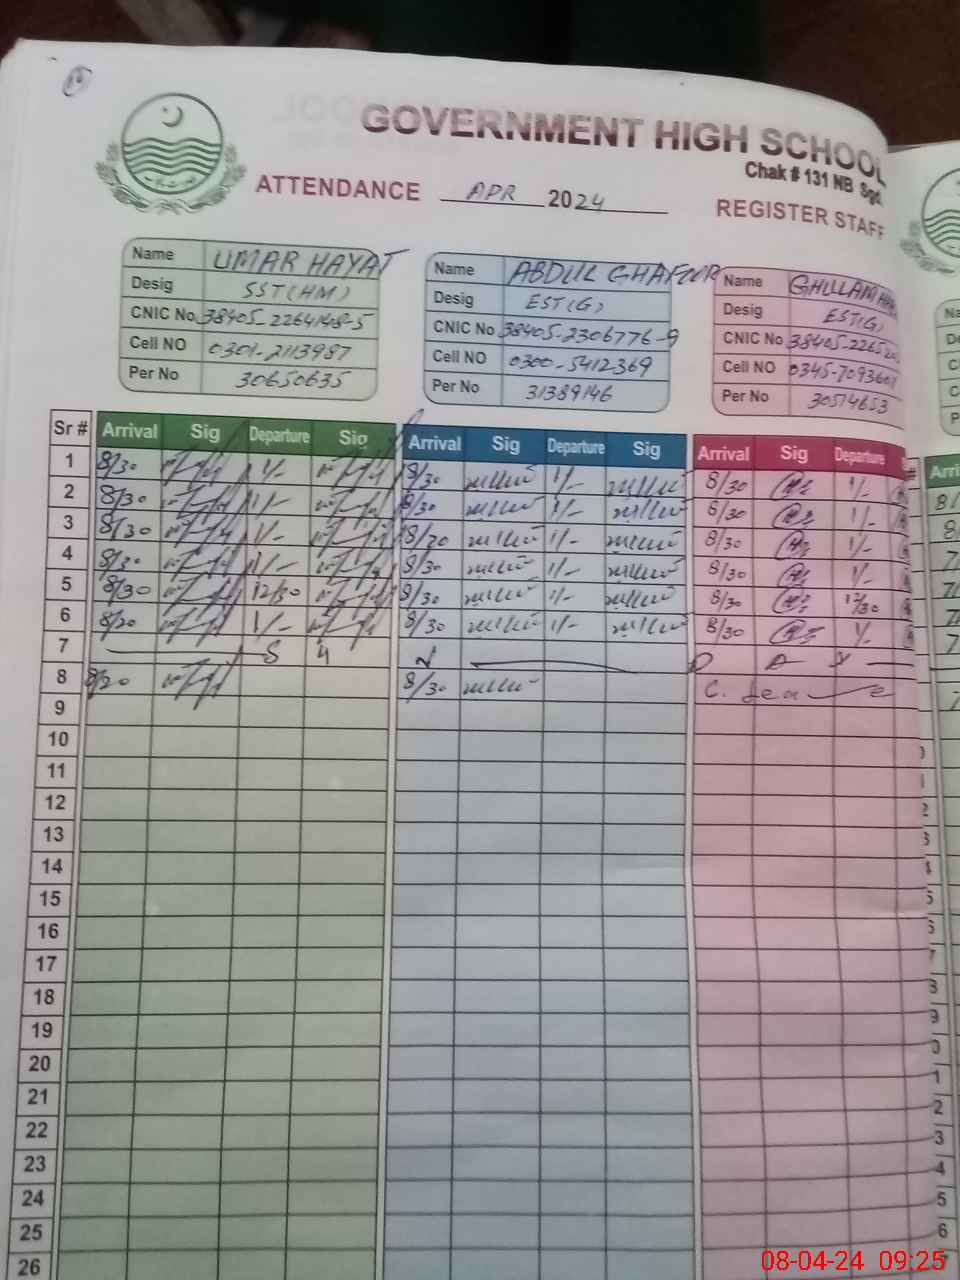 GOVERNMENT HIGH SCHOOL
Chak # 131 NB Sgd.
ATTENDANCE APR 2024 REGISTER STAFF
Name UMAR HAYAT
Desig SST(HM)
CNIC No 38405-2264148-5
Cell NO 0301-2113987
Per No 30650635
Name ABDUL GHAFOOR
Desig EST(G)
CNIC No 38405-2306776-9
Cell NO 0300-5412369
Per No 31389146
Name GHULLAM
Desig EST(G)
CNIC No
Cell NO
Per No 30514653
Sr # Arrival Sig Departure Sig Arrival Sig Departure Sig Arrival Sig Departure
1 8/30 1/- 8/30 1/- 8/30 1/-
2 8/30 1/- 8/30 1/- 8/30 1/-
3 8/30 1/- 8/30 1/- 8/30 1/-
4 8/30 1/- 8/30 1/- 8/30 1/-
5 8/30 12/30 8/30 1/- 8/30 12/30
6 8/30 1/- 8/30 1/- 8/30 1/-
7 S U N D A Y
8 8/30 8/30 C. Leave
9
10
11
12
13
14
15
16
17
18
19
20
21
22
23
24
25
26
08-04-24 09:25